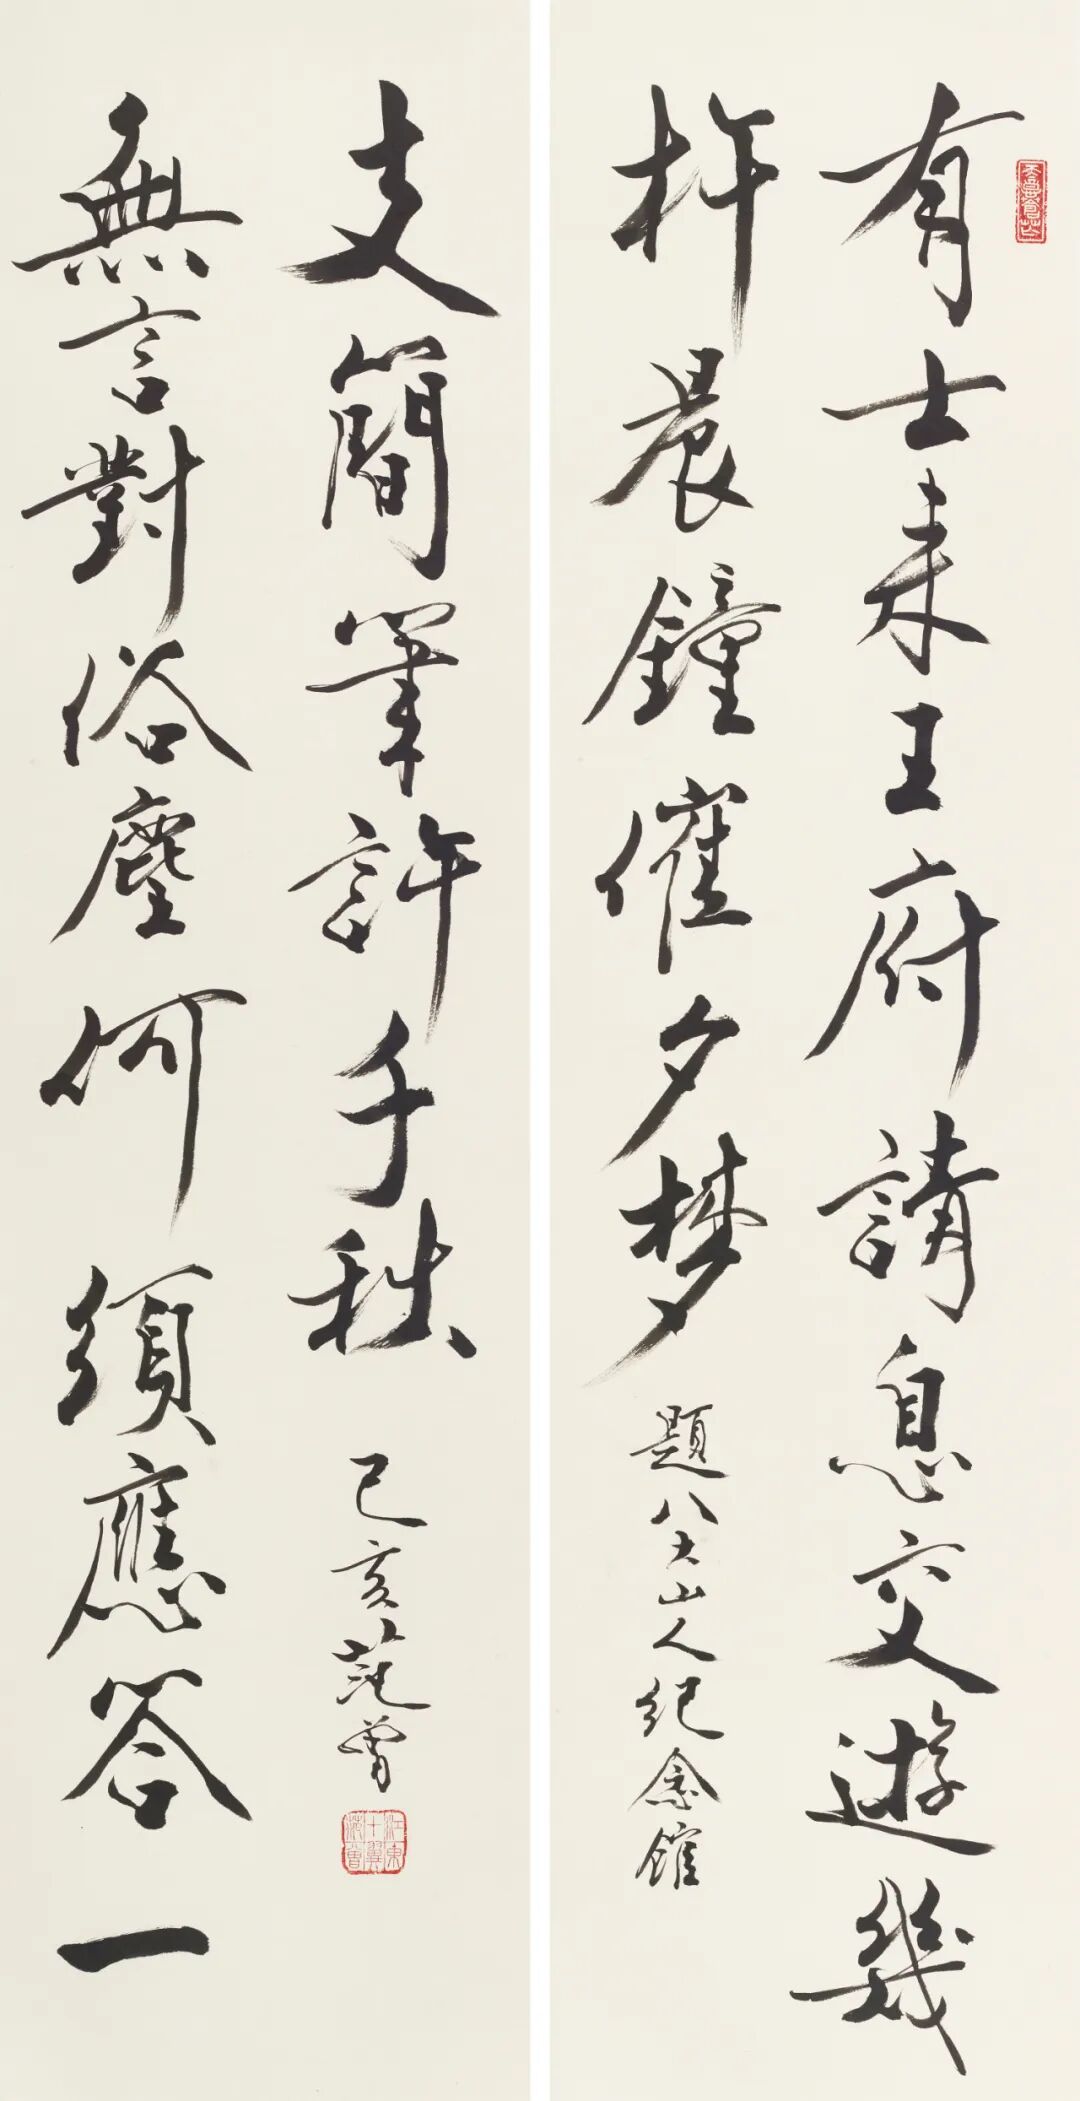 有士来王府請息交遊幾
杵晨鐘催夕夢
題八大山人紀念館
無言對俗塵何須應答一
支簡筆許千秋
己亥范曾
江東十翼范曾